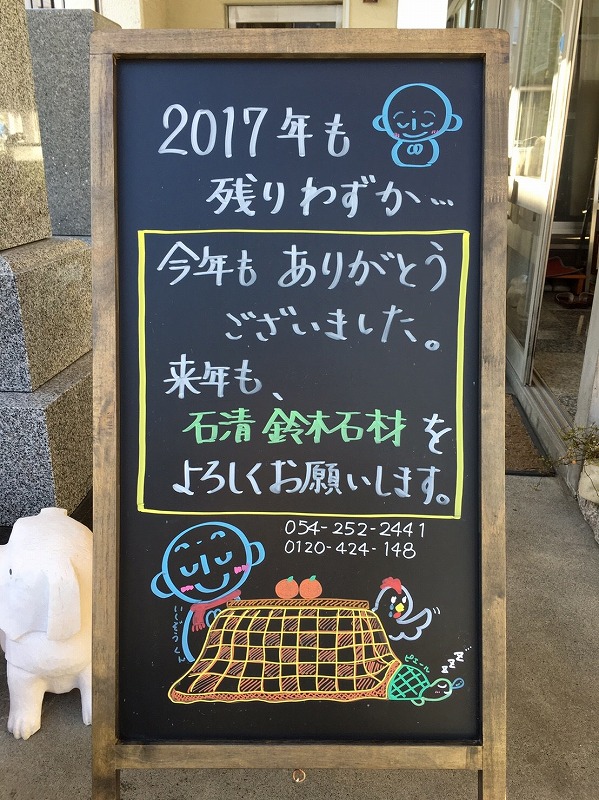 2017年も
残りわずか…
今年も ありがとう
ございました。
来年も、
石清 鈴木石材 を
よろしくお願いします。
054-252-2441
0120-424-148
いしぞうくん
ピエール
zzz